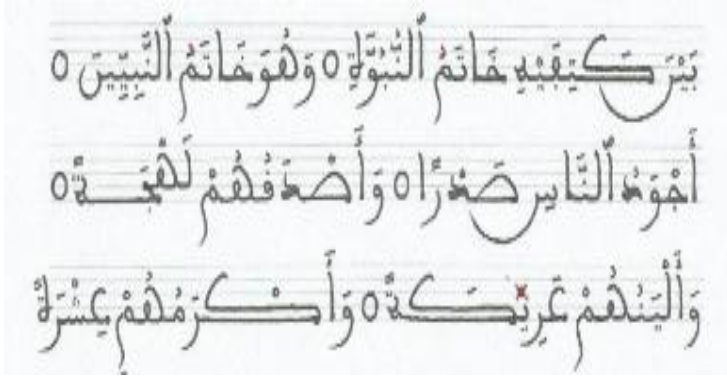 بَيْنَ كَتِفَيْهِ خَاتَمُ ٱلنُّبُوَّةِ ○ وَهُوَ خَاتَمُ ٱلنَّبِيِّينَ ○
أَجْوَدُ ٱلنَّاسِ صَدْرًا ○ وَأَصْدَقُهُمْ لَهْجَةً ○
وَأَلْيَنُهُمْ عَرِيكَةً ○ وَأَكْرَمُهُمْ عِشْرَةً